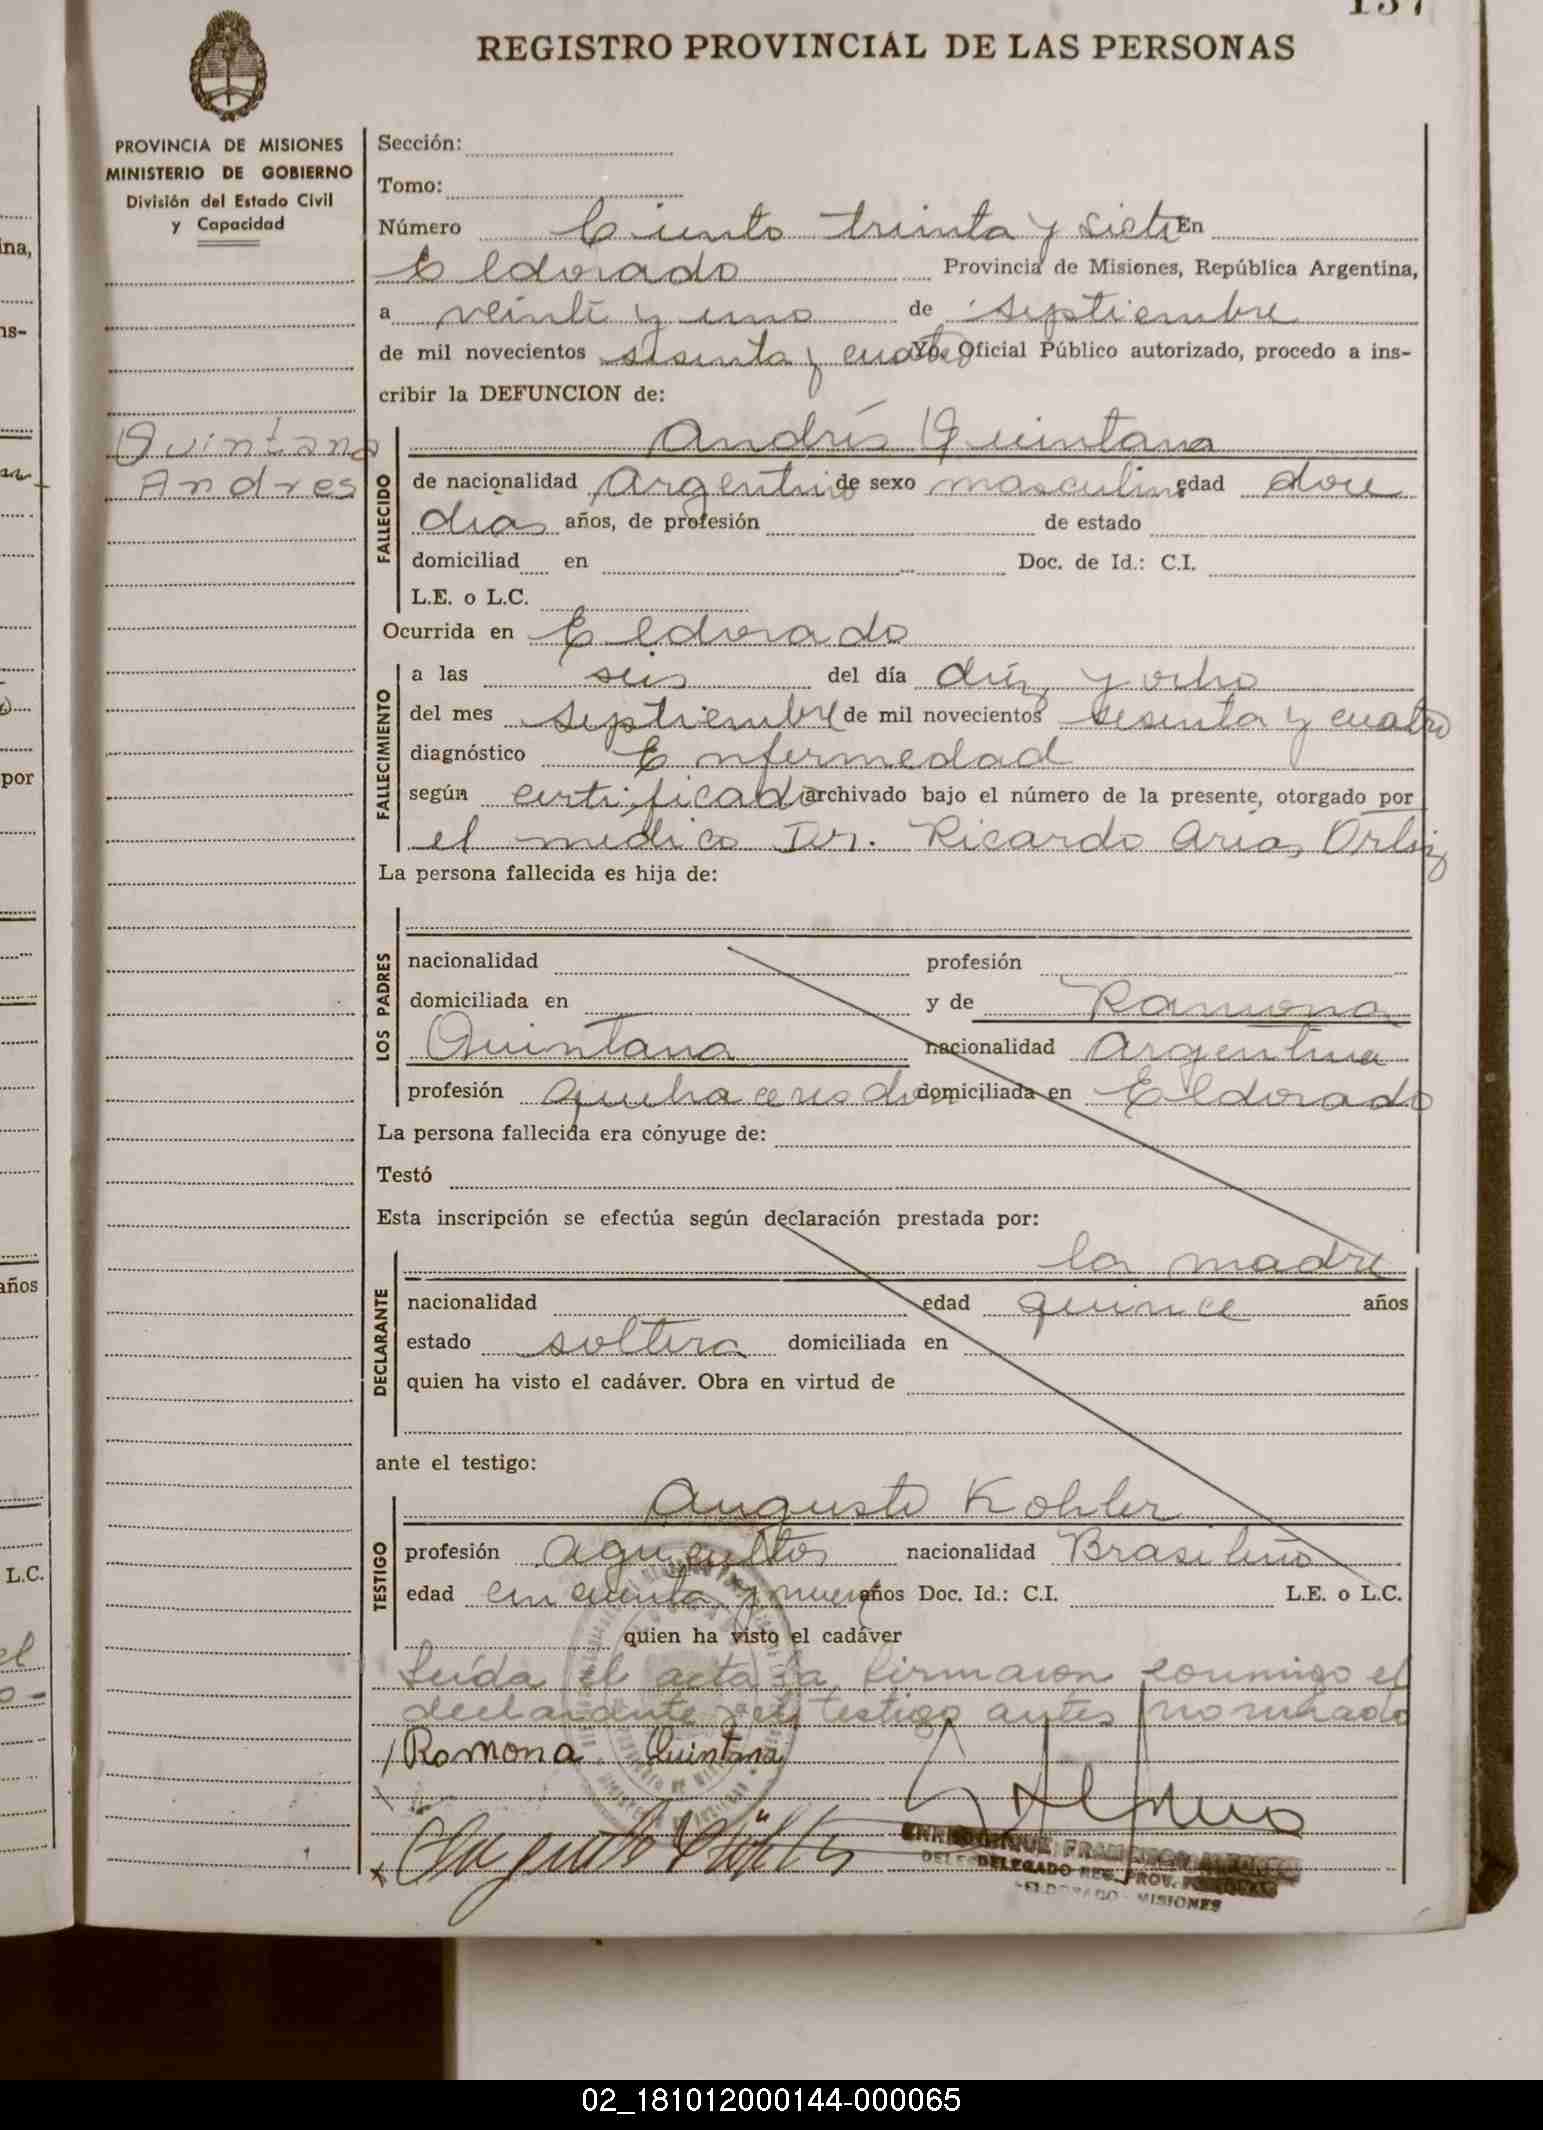 137
REGISTRO PROVINCIAL DE LAS PERSONAS
PROVINCIA DE MISIONES
MINISTERIO DE GOBIERNO
División del Estado Civil
y Capacidad
Sección:
Tomo:
Número Ciento trienta y siete En
Eldorado Provincia de Misiones, República Argentina,
a veinti y uno de septiembre
de mil novecientos sesenta y cuatro Yo, Oficial Público autorizado, procedo a ins-
cribir la DEFUNCION de:
Quintana
Andres
FALLECIDO
Andrés Quintana
de nacionalidad Argentino de sexo masculino edad doce
dias años, de profesión de estado
domiciliad en Doc. de Id.: C.I.
L.E. o L.C.
Ocurrida en Eldorado
FALLECIMIENTO
a las seis del día diez y ocho
del mes septiembre de mil novecientos sesenta y cuatro
diagnóstico Enfermedad
según certificado archivado bajo el número de la presente, otorgado por
el medico Dr. Ricardo Arias Ortiz
La persona fallecida es hija de:
LOS PADRES
nacionalidad profesión
domiciliada en y de Ramona
Quintana nacionalidad Argentina
profesión quehaceres dom domiciliada en Eldorado
La persona fallecida era cónyuge de:
Testó
Esta inscripción se efectúa según declaración prestada por:
DECLARANTE
la madre
nacionalidad edad quince años
estado soltera domiciliada en
quien ha visto el cadáver. Obra en virtud de
ante el testigo:
TESTIGO
Augusto Kohler
profesión agricultor nacionalidad Brasileño
edad cincuenta y nueve años Doc. Id.: C.I. L.E. o L.C.
quien ha visto el cadáver
Leída el acta la firmaron conmigo el
declarante y el testigo antes nombrado
Ramona Quintana
Augusto Köhler
DELEGADO REG. PROV. PERSONAS
ELDORADO - MISIONES
ina,
ns-
por
años
L.C.
el
02_181012000144-000065